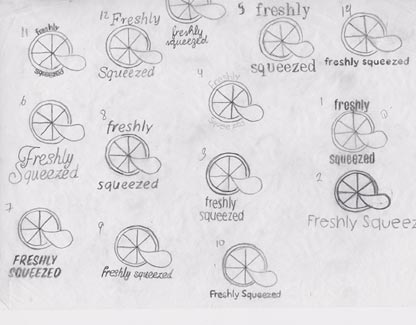 11
freshly
squeezed
12
Freshly
Squeezed
freshly
squeezed
5
freshly
squeezed
14
freshly squeezed
6
Freshly
Squeezed
8
freshly
squeezed
4
freshly
squeezed
1
freshly
squeezed
3
freshly
squeezed
2
Freshly Squeez
7
FRESHLY
SQUEEZED
9
freshly squeezed
10
Freshly Squeezed